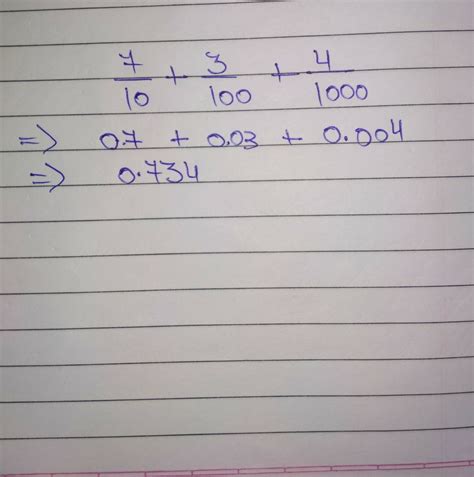 7/10 + 3/100 + 4/1000
=> 0.7 + 0.03 + 0.004
=> 0.734